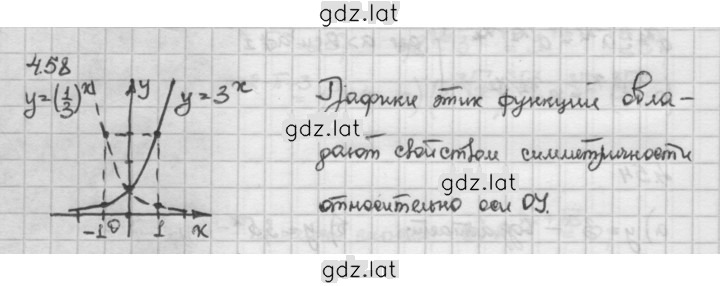 gdz.lat
4.58
y=(1/3)^x
y
y=3^x
-1
0
1
x
Графики этих функций обла-
gdz.lat
дают свойством симметричности
gdz.lat
относительно оси OY.
gdz.lat